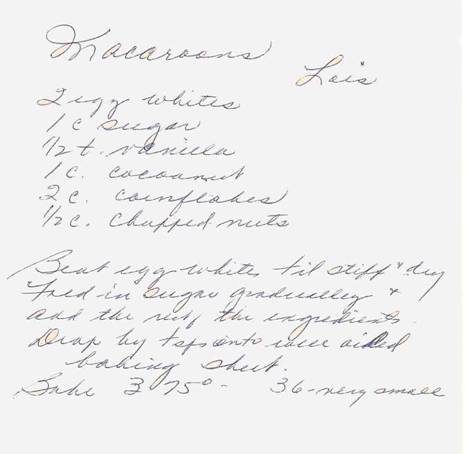 Macaroons
Lois
2 egg whites
1 c sugar
1/2 t. vanilla
1 c. cocoanut
2 c. cornflakes
1/2 c. chopped nuts
Beat egg whites til stiff & dry
Fold in sugar gradually &
add the rest of the ingredients.
Drop by tsp onto well oiled
baking sheet.
Bake 375° - 36 - very small